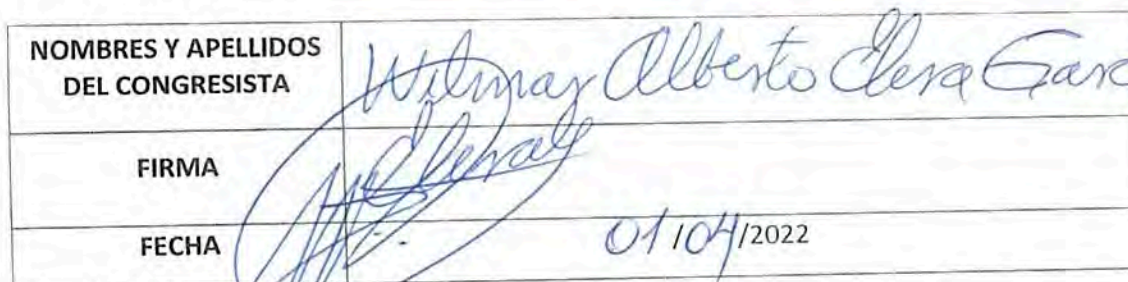 NOMBRES Y APELLIDOS
DEL CONGRESISTA
Wilmar Alberto Elera Garc
FIRMA
Elera
FECHA
01/04/2022